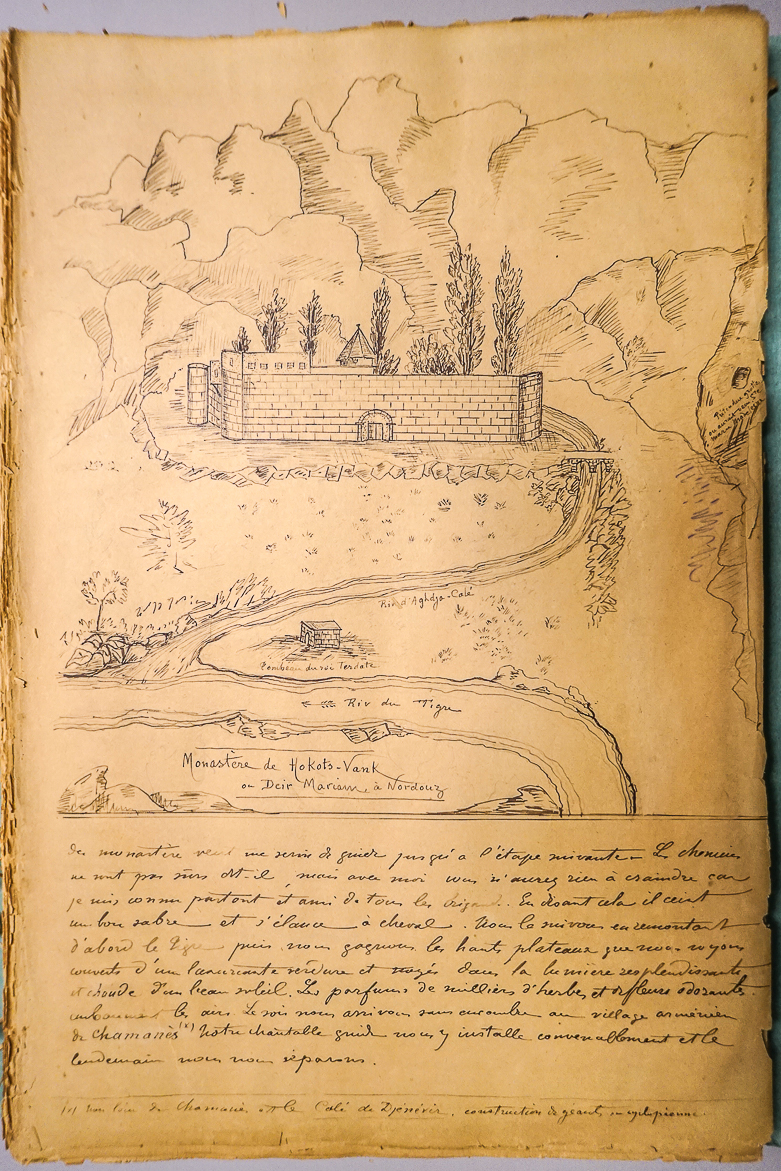 Riv d'Aghdja-Calé
Tombeau du roi Terdate
Riv du Tigre
Monastère de Hokots-Vank
ou Deir Mariam, à Nordouz
du monastère veut me servir de guide jusqu'à l'étape suivante — Les chemins
ne sont pas sûrs dit-il, mais avec moi vous n'aurez rien à craindre car
je suis connu partout et ami de tous les brigands. En disant cela il ceint
un bon sabre et s'élance à cheval. Nous le suivons en remontant
d'abord le Tigre puis nous gagnons les hauts plateaux que nous voyons
couverts d'un luxuriante verdure et noyés dans la lumière resplendissante
et chaude d'un beau soleil. Les parfums de milliers d'herbes et de fleurs odorantes
embaument les airs. Le soir nous arrivons sans encombre au village arménien
de Chamanès (x) Notre charitable guide nous y installe convenablement et le
lendemain nous nous séparons.
(x) Non loin de Chamanès est le Calé de Djénévir, construction de géants ou cyclopéenne.